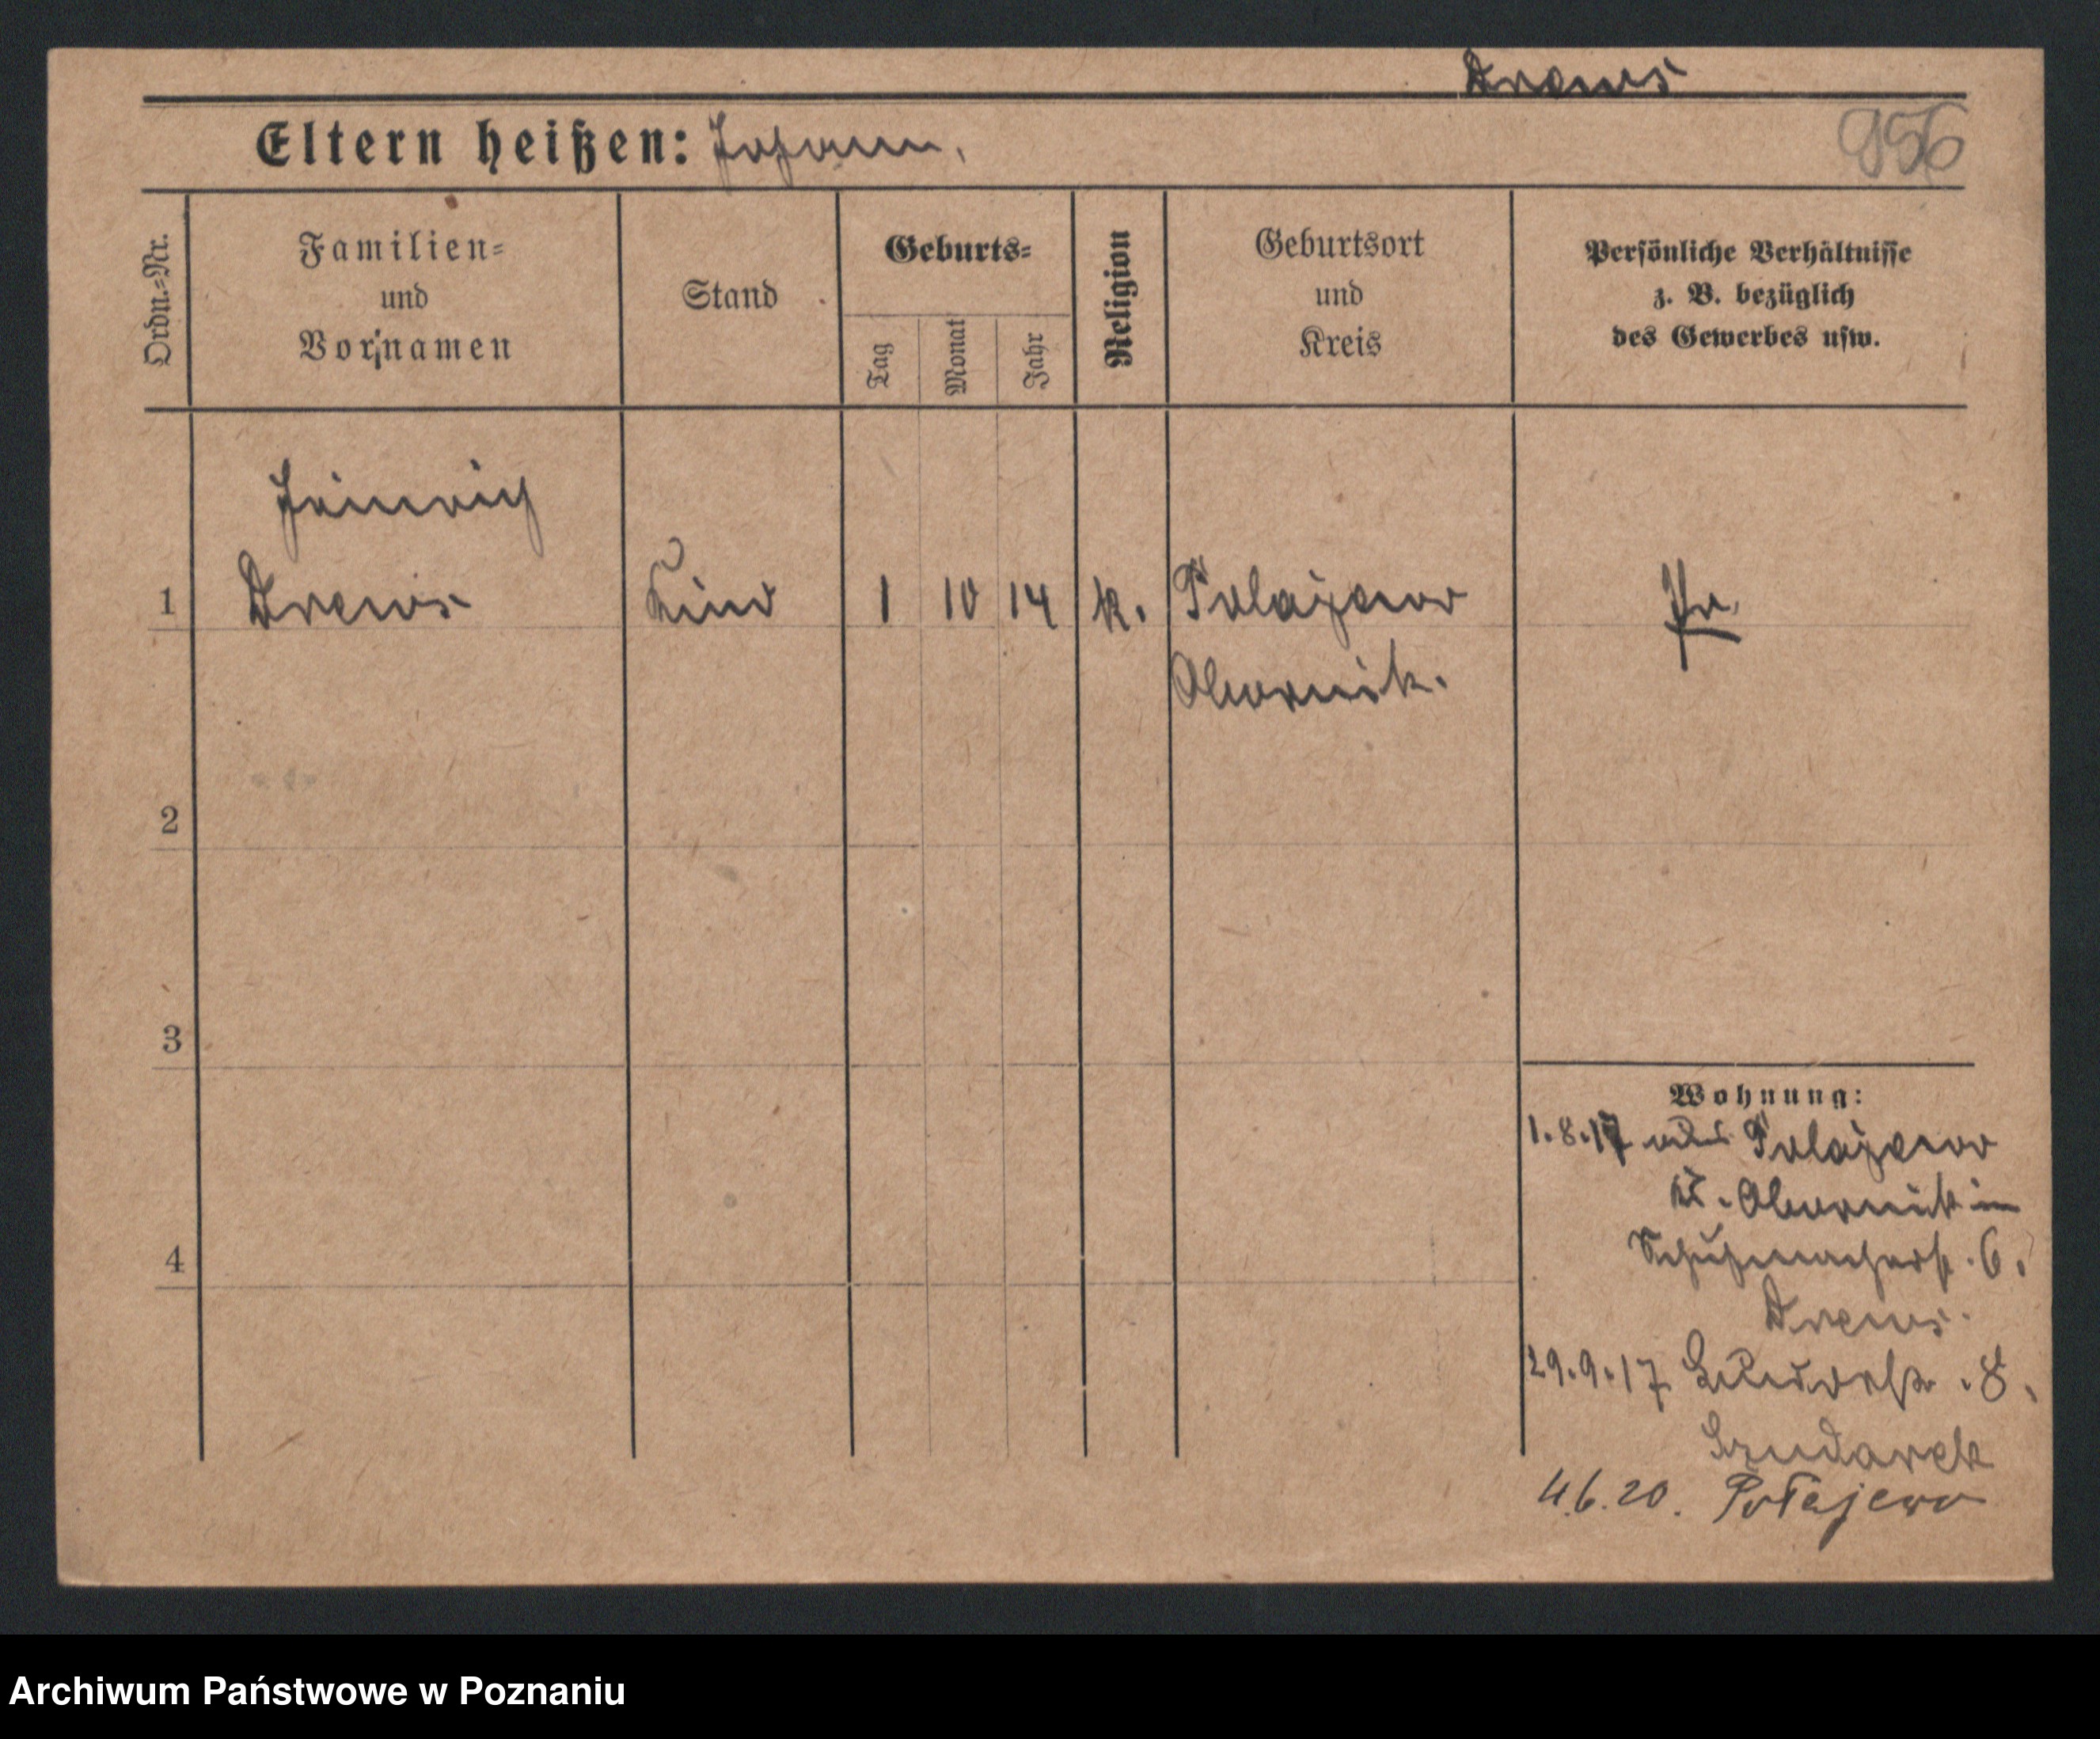 Drews
Eltern heißen: Johann.
956
Ordn.-Nr.
Familien-
und
Vornamen
Stand
Geburts-
Tag
Monat
Jahr
Religion
Geburtsort
und
Kreis
Persönliche Verhältnisse
z. B. bezüglich
des Gewerbes usw.
Heinrich
1 Drews Kind 1 10 14 k. Polajewo Pr.
Obornik.
2
3
4
Wohnung:
1.8.17 aus Polajewo
K. Obornik in
Schuhmacherst. 6.
Drews.
29.9.17 8.
4.6.20. Połajewo
Archiwum Państwowe w Poznaniu